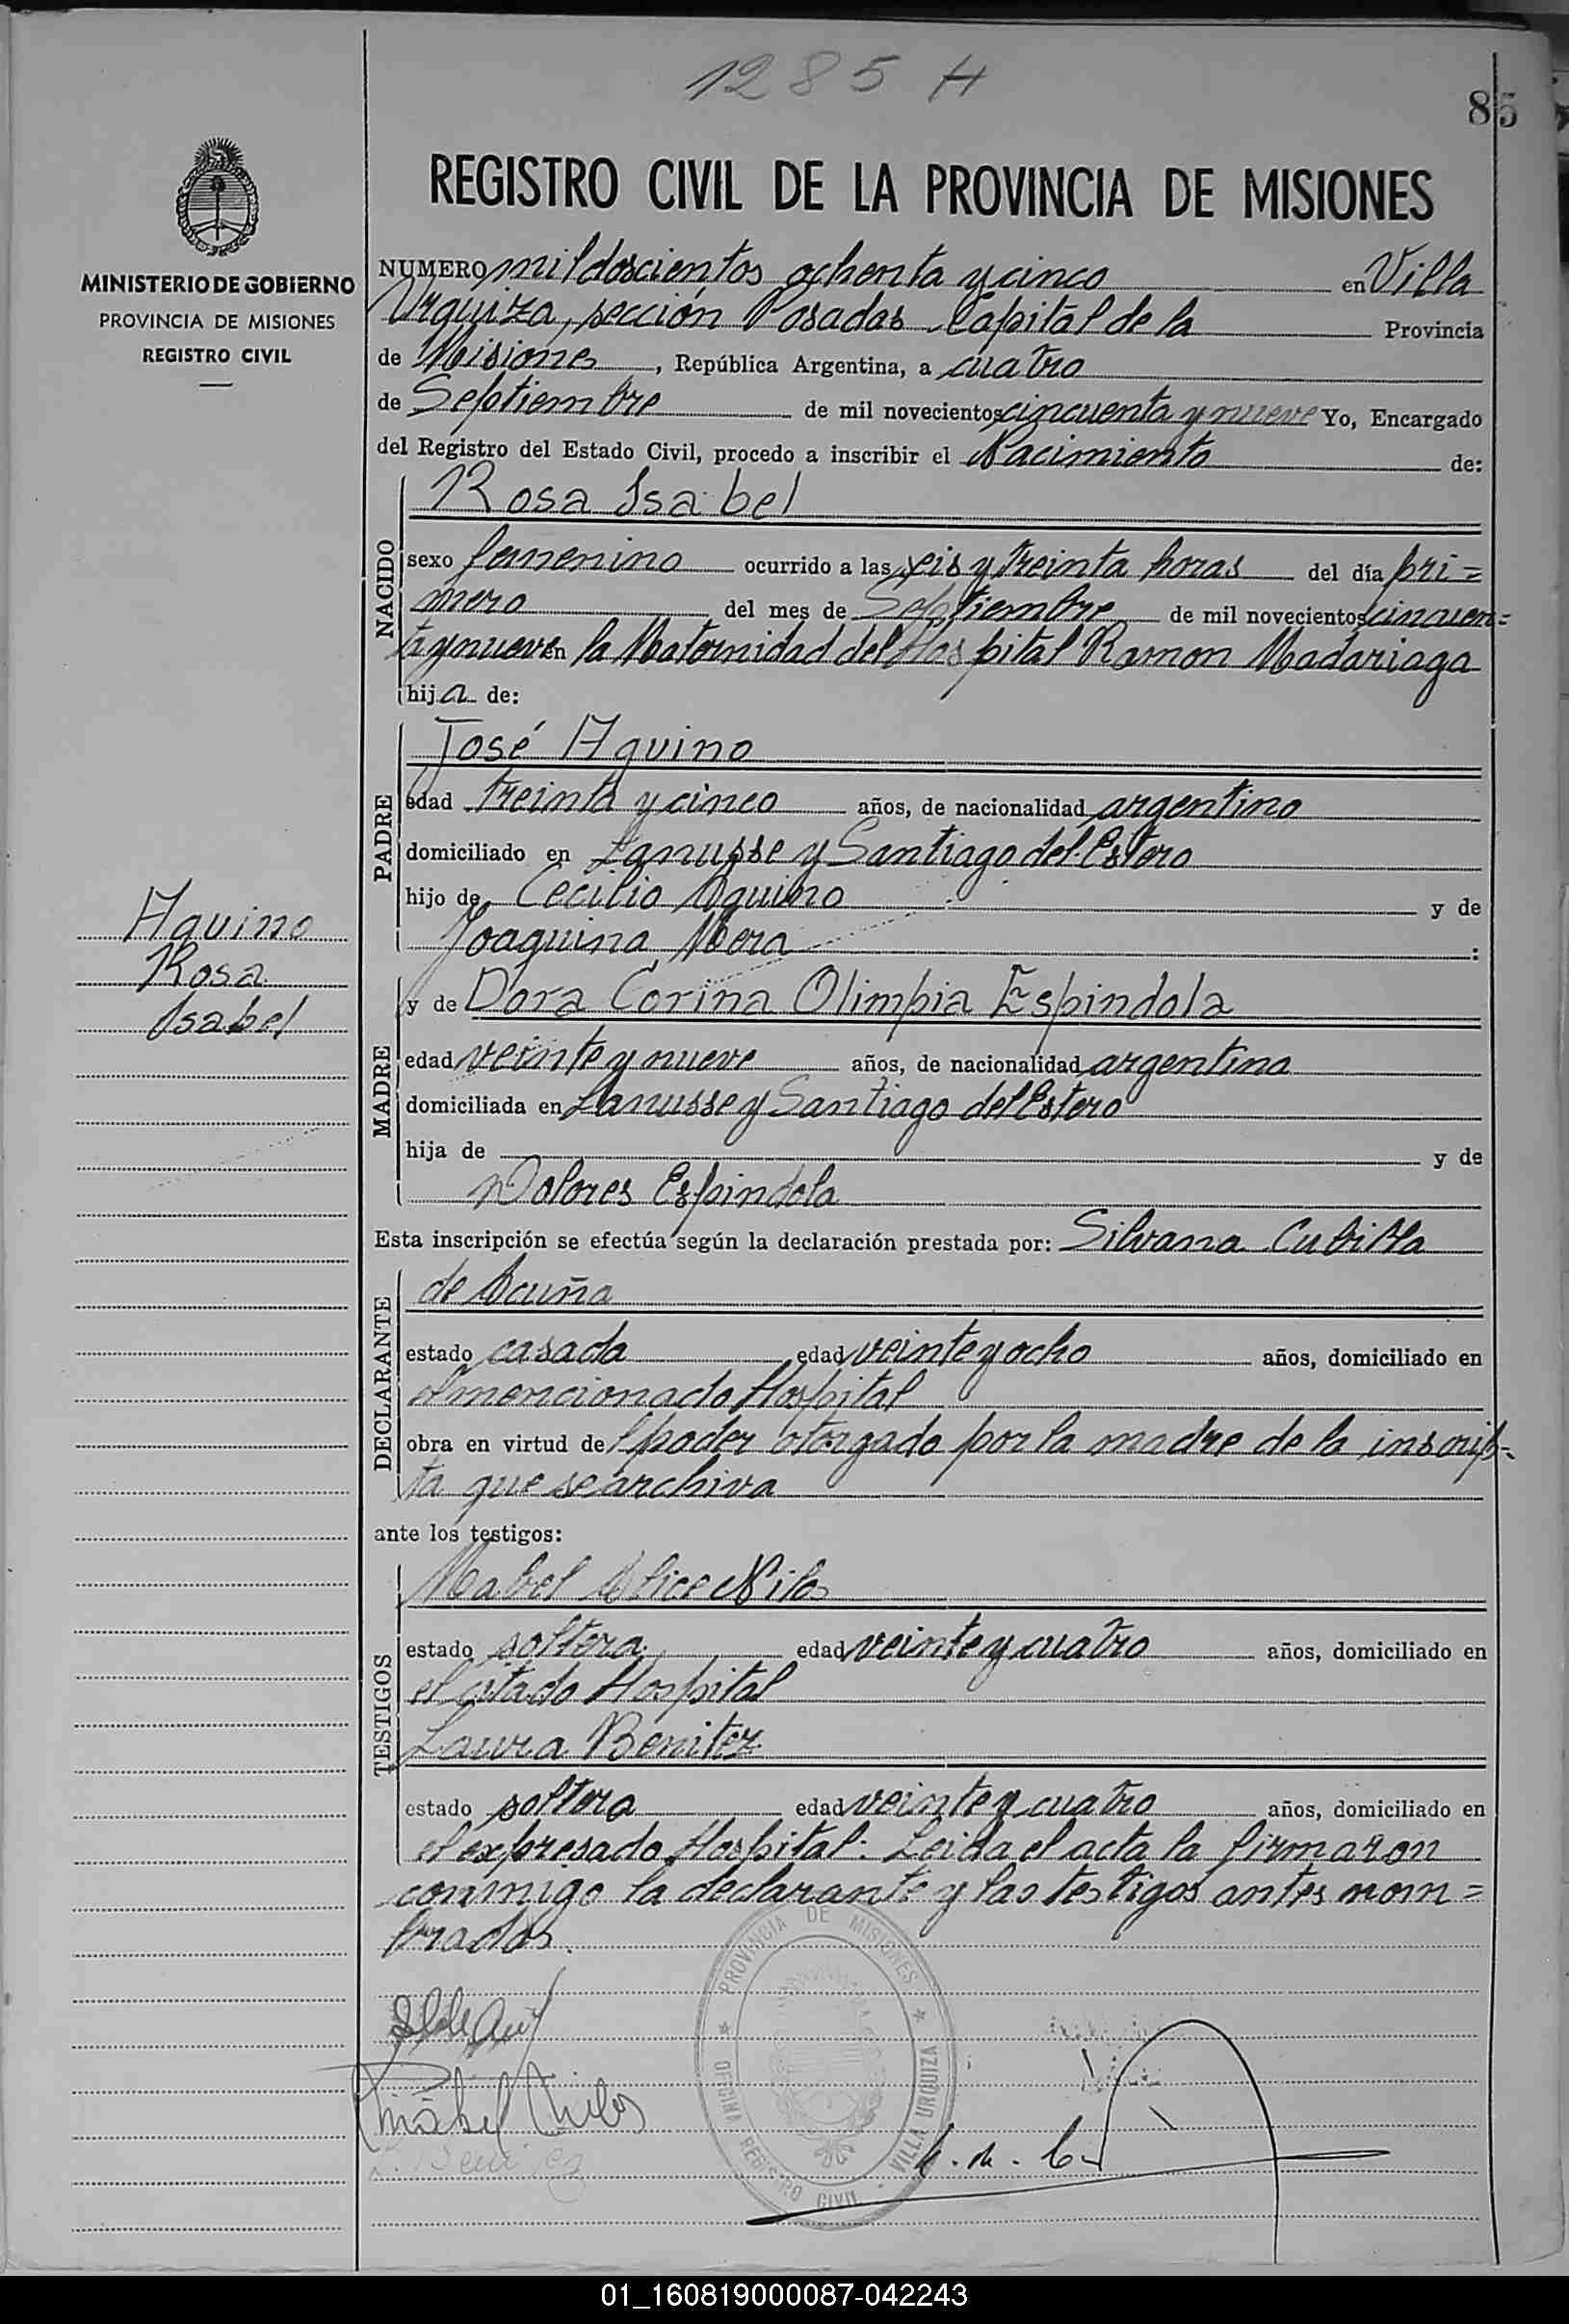 1285 H
85
MINISTERIO DE GOBIERNO
PROVINCIA DE MISIONES
REGISTRO CIVIL
REGISTRO CIVIL DE LA PROVINCIA DE MISIONES
NUMERO mil doscientos ochenta y cinco en Villa
Urquiza, sección Posadas Capital de la Provincia
de Misiones, República Argentina, a cuatro
de Septiembre de mil novecientos cincuenta y nueve Yo, Encargado
del Registro del Estado Civil, procedo a inscribir el Nacimiento de:
NACIDO
Rosa Isabel
sexo femenino ocurrido a las seis y treinta horas del día pri=
mero del mes de Septiembre de mil novecientos cincuen=
ta y nueve en la Maternidad del Hospital Ramon Madariaga
hija de:
PADRE
José Aquino
edad treinta y cinco años, de nacionalidad argentino
domiciliado en Lanusse y Santiago del Estero
hijo de Cecilio Aquino y de
Joaquina Mora :
Aquino
Rosa
Isabel
MADRE
y de Dora Corina Olimpia Espindola
edad veinte y nueve años, de nacionalidad argentina
domiciliada en Lanusse y Santiago del Estero
hija de y de
Dolores Espindola
Esta inscripción se efectúa según la declaración prestada por: Silvana Cubilla
DECLARANTE
de Acuña
estado casada edad veinte y ocho años, domiciliado en
el mencionado Hospital
obra en virtud del poder otorgado por la madre de la inscrip-
ta que se archiva
ante los testigos:
TESTIGOS
Mabel Alice Nilos
estado soltera edad veinte y cuatro años, domiciliado en
el citado Hospital
Laura Benitez
estado soltera edad veinte y cuatro años, domiciliado en
el expresado Hospital. Leida el acta la firmaron
conmigo la declarante y las testigos antes nom=
bradas.
PROVINCIA DE MISIONES
OFICINA REGISTRO CIVIL - VILLA URQUIZA
Mabel Nilos
L. Benitez
01_160819000087-042243